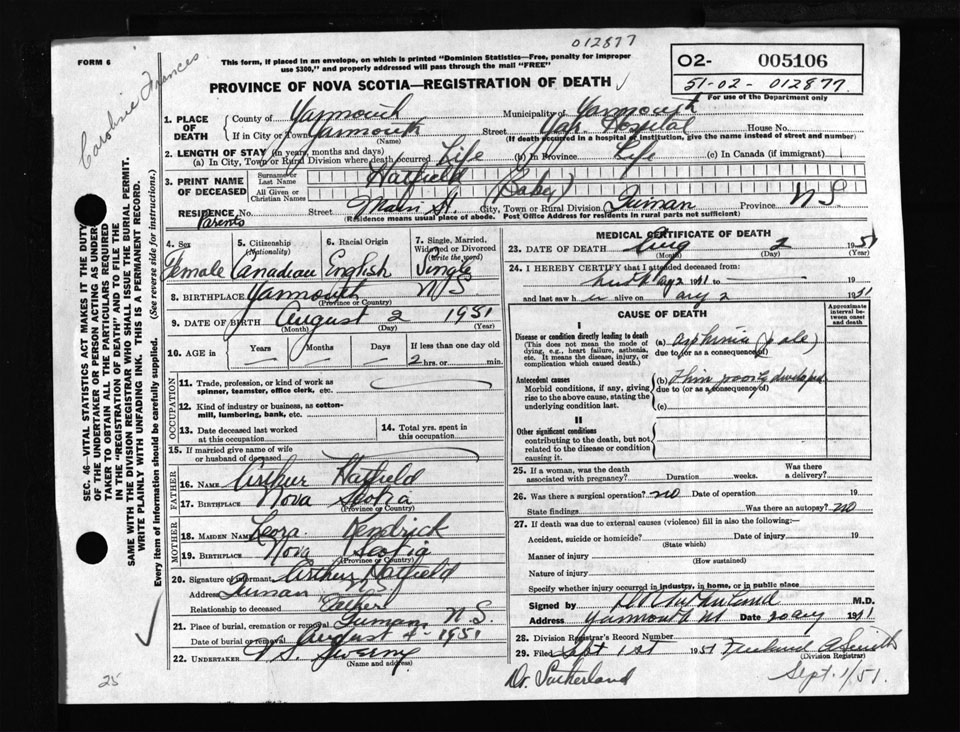 012877
FORM 6
This form, if placed in an envelope, on which is printed "Dominion Statistics—Free, penalty for improper
use $300," and properly addressed will pass through the mail "FREE"
O2- 005106
51-02-012877
For use of the Department only
PROVINCE OF NOVA SCOTIA—REGISTRATION OF DEATH
Frances
1. PLACE OF DEATH
County of Yarmouth Municipality of Yarmouth
If in City or Town Yarmouth Street Hospital House No.
(Name) (If death occurred in a hospital or institution, give name instead of street and number)
2. LENGTH OF STAY (in years, months and days)
(a) In City, Town or Rural Division where death occurred Life (b) In Province Life (c) In Canada (if immigrant)
3. PRINT NAME OF DECEASED
Surname or Last Name Hatfield
All Given or Christian Names (Baby)
RESIDENCE No. Street Main St. City, Town or Rural Division Province N S
Parents (Residence means usual place of abode. Post Office Address for residents in rural parts not sufficient)
4. Sex 5. Citizenship (Nationality) 6. Racial Origin 7. Single, Married, Widowed or Divorced (Write the word)
Female Canadian English Single
8. BIRTHPLACE Yarmouth N S
(Province or Country)
9. DATE OF BIRTH August 2 1951
(Month) (Day) (Year)
10. AGE in Years Months Days If less than one day old
2 hrs. or min.
OCCUPATION
11. Trade, profession, or kind of work as spinner, teamster, office clerk, etc.
12. Kind of industry or business, as cotton-mill, lumbering, bank, etc.
13. Date deceased last worked at this occupation 14. Total yrs. spent in this occupation
15. If married give name of wife or husband of deceased
FATHER
16. NAME Arthur Hatfield
17. BIRTHPLACE Nova Scotia
(Province or Country)
MOTHER
18. MAIDEN NAME Leora Kendrick
19. BIRTHPLACE Nova Scotia
(Province or Country)
20. Signature of informant Arthur Hatfield
Address
Relationship to deceased Father
21. Place of burial, cremation or removal N.S.
Date of burial or removal August 4 - 1951
22. UNDERTAKER V S. Sweeny
(Name and address)
MEDICAL CERTIFICATE OF DEATH
23. DATE OF DEATH Aug 2 1951
(Month) (Day) (Year)
24. I HEREBY CERTIFY that I attended deceased from
Aug 2 1951 to 19
and last saw h alive on Aug 2 1951
CAUSE OF DEATH
Approximate interval between onset and death
I
Disease or condition directly leading to death
(This does not mean the mode of dying, e.g., heart failure, asthenia, etc. It means the disease, injury, or complication which caused death.)
(a) Asphixia (pale)
due to (or as a consequence of)
Antecedent causes
Morbid conditions, if any, giving rise to the above cause, stating the underlying condition last.
(b) Thin poorly developed
due to (or as a consequence of)
(c)
II
Other significant conditions
contributing to the death, but not related to the disease or condition causing it.
25. If a woman, was the death associated with pregnancy? Duration weeks. Was there a delivery?
26. Was there a surgical operation? no Date of operation 19
State findings Was there an autopsy? no
27. If death was due to external causes (violence) fill in also the following:—
Accident, suicide or homicide? Date of injury 19
(State which)
Manner of injury
(How sustained)
Nature of injury
Specify whether injury occurred in industry, in home, or in public place
Signed by M.D.
Address Yarmouth NS Date 20 Aug 1951
28. Division Registrar's Record Number
29. Filed Sept 1st 1951
(Division Registrar)
Dr. Sutherland Sept. 1/51.
SEC. 46—VITAL STATISTICS ACT MAKES IT THE DUTY
OF THE UNDERTAKER OR PERSON ACTING AS UNDER-
TAKER TO OBTAIN ALL THE PARTICULARS REQUIRED
IN THE "REGISTRATION OF DEATH" AND TO FILE THE
SAME WITH THE DIVISION REGISTRAR WHO SHALL ISSUE THE BURIAL PERMIT.
WRITE PLAINLY WITH UNFADING INK. THIS IS A PERMANENT RECORD.
Every item of information should be carefully supplied. (See reverse side for instructions.)
25